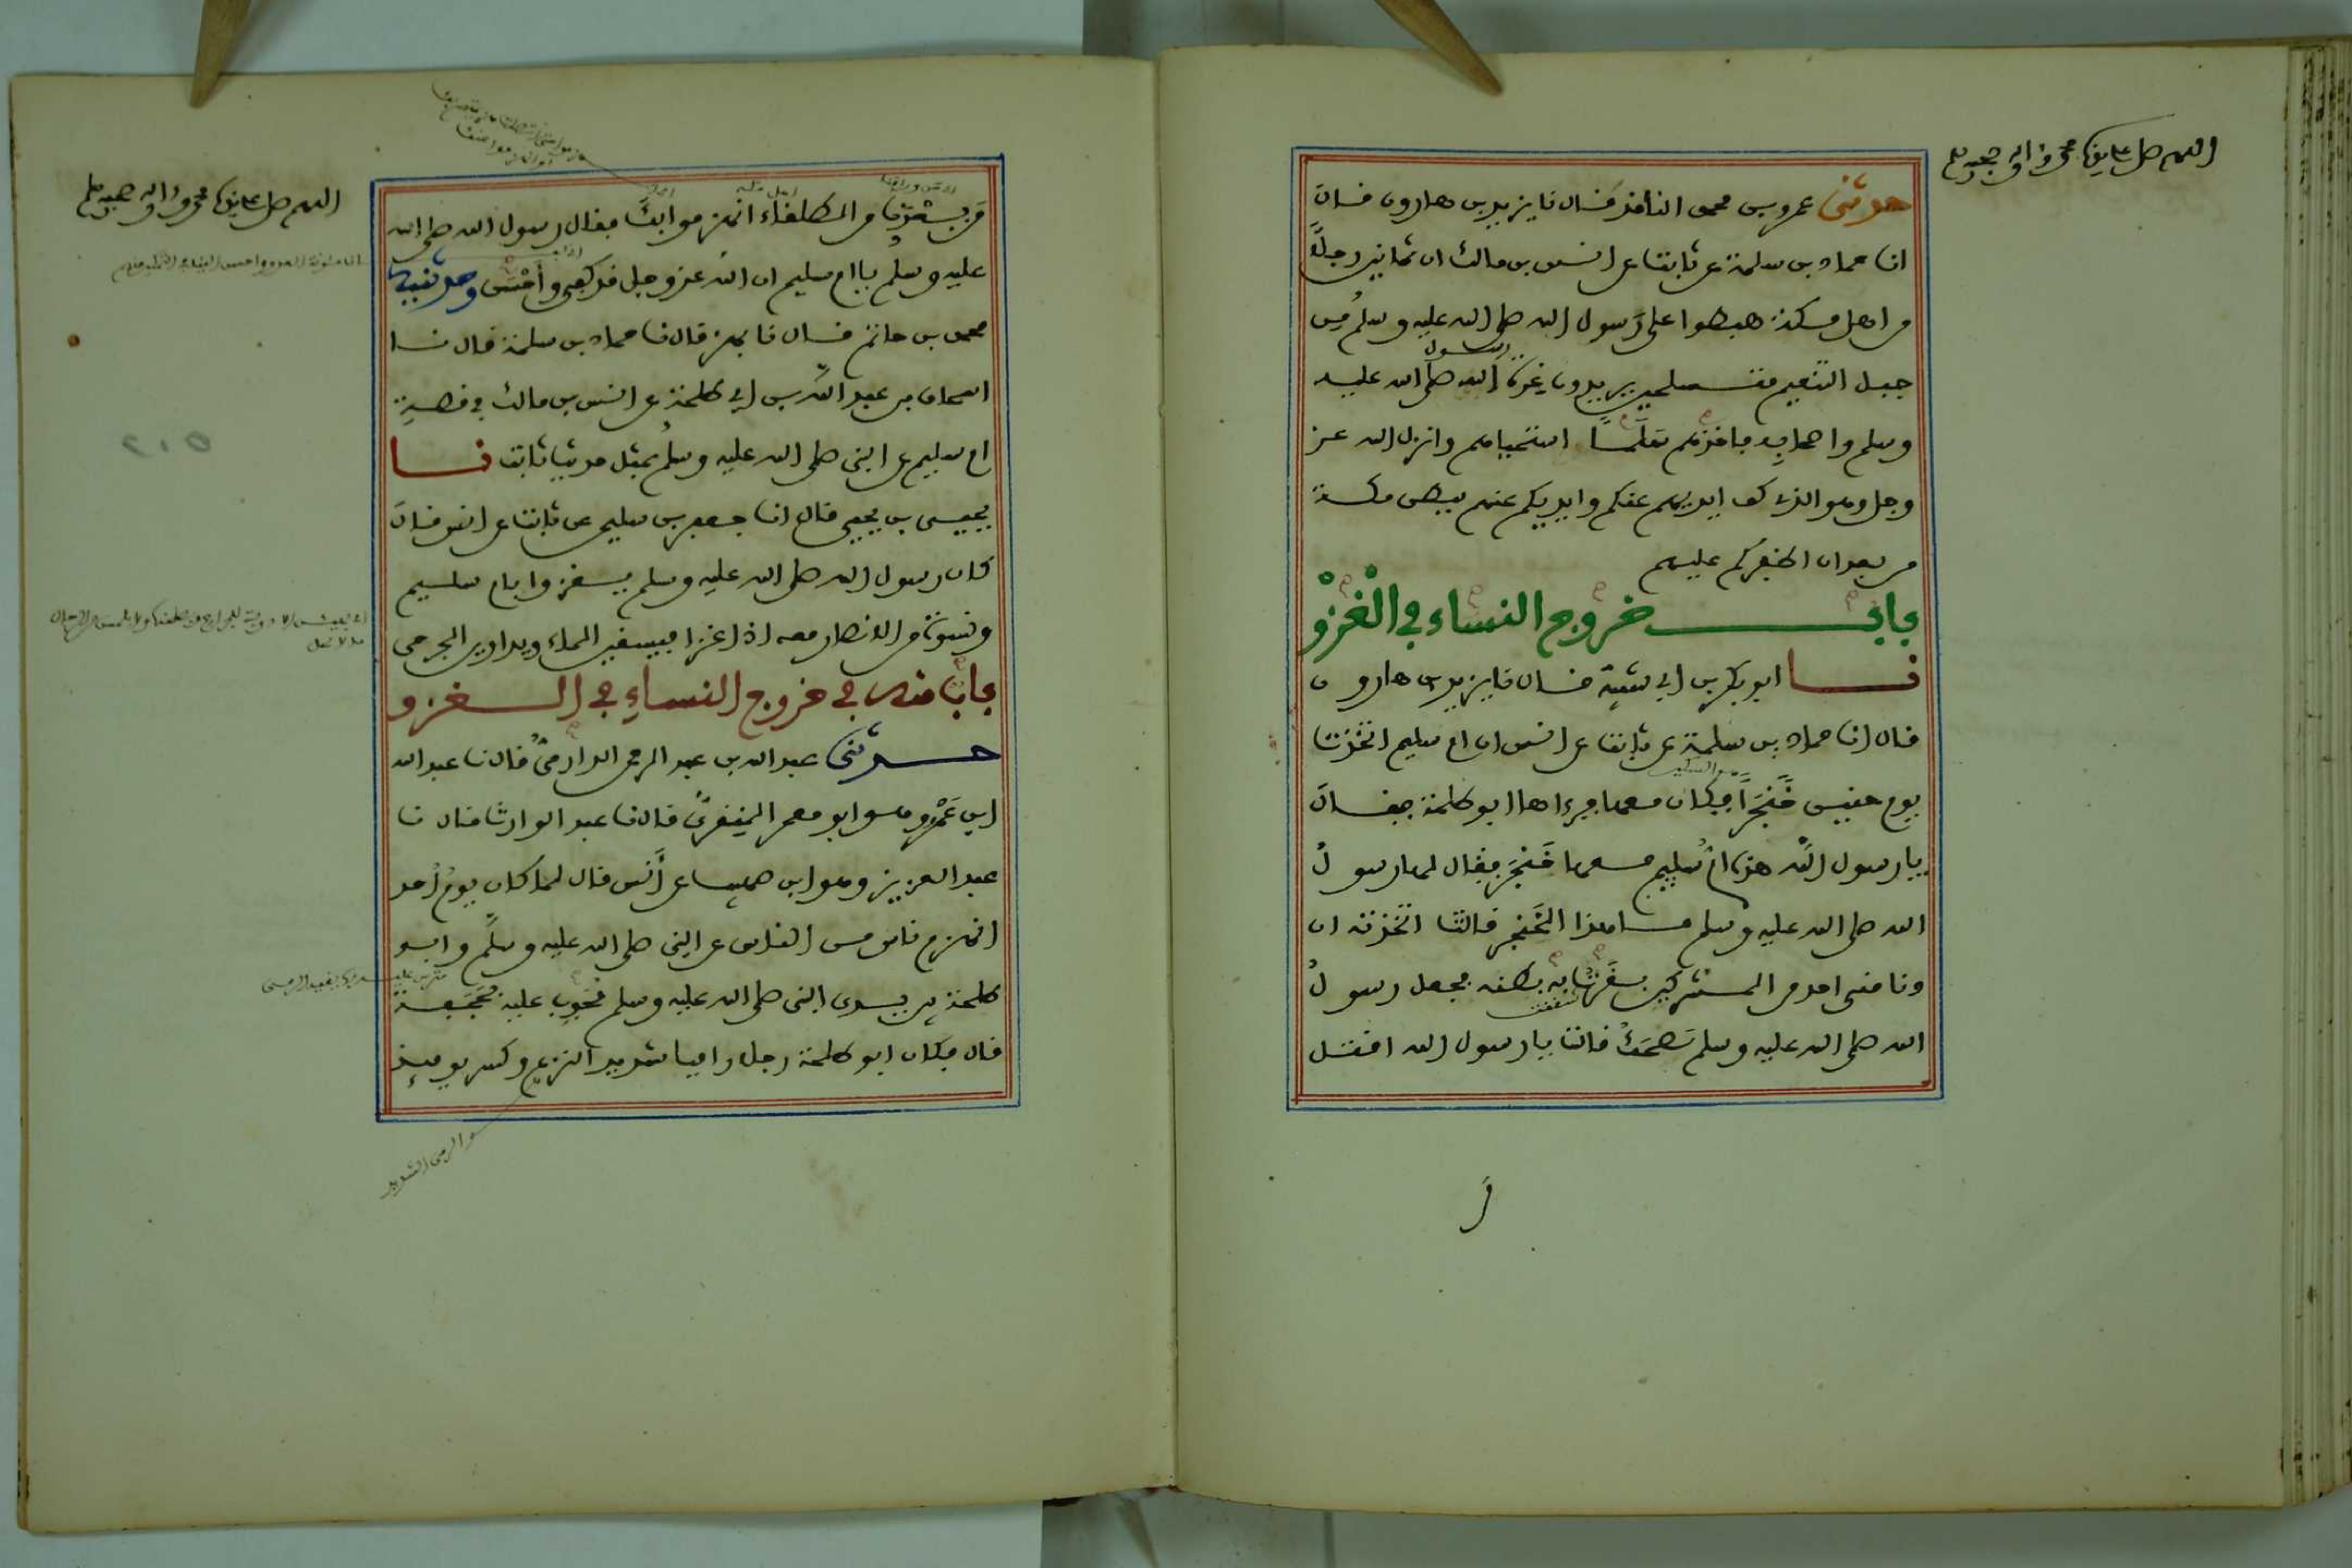 اللهم صل على سيدنا محمد وآله وصحبه وسلم
حدثني عمرو بن محمد الناقد قال نا يزيد بن هارون قال
انا حماد بن سلمة عن ثابت عن انس بن مالك ان ثمانين رجلاً
من اهل مكة هبطوا على رسول الله صلى الله عليه وسلم من
جبل التنعيم متسلحين يريدون غرة رسول الله صلى الله عليه
وسلم واصحابه فاخذهم سَلَماً استحياهم وانزل الله عز
وجل وهو الذي كف ايديهم عنكم وايديكم عنهم ببطن مكة
من بعد ان اظفركم عليهم
باب خروج النساء في الغَزْوْ
نا ابو بكر بن ابي شيبة قال نا يزيد بن هارون
قال انا حماد بن سلمة عن ثابت عن انس ان ام سليم اتخذت
يوم حنين خَنْجَراً فكان معها فرءاها ابو طلحة فقال
يا رسول الله هذه ام سُليم معها خَنْجَر فقال لها رسول
الله صلى الله عليه وسلم ما هذا الخَنْجَر قالت اتخذته ان
دنا مني احد من المشركين بقَرْتُ به بطنه فجعل رسول
الله صلى الله عليه وسلم يَضْحَكُ قالت يا رسول الله اقتل
اللهم صل على سيدنا محمد وآله وصحبه وسلم
مَن بعْدَنا من الطلقاء انهزموا بك فقال رسول الله صلى الله
عليه وسلم يا ام سليم ان الله عز وجل قد كفى وأحْسَن وحدثنيه
محمد بن حاتم قال نا بهز قال نا حماد بن سلمة قال نا
اسحاق بن عبد الله بن ابي طلحة عن انس بن مالك في قصة
ام سليم عن النبي صلى الله عليه وسلم بمثل حديث ثابت نا
يحيى بن يحيى قال انا جعفر بن سليمن عن ثابت عن انس قال
كان رسول الله صلى الله عليه وسلم يغزوا بام سليم
ونسوة من الانصار معه اذا غزا فيسقين الماء ويداوين الجرحى
باب منه في خروج النساء في الغزو
حدثني عبد الله بن عبد الرحمن الدارميّ قال نا عبد الله
ابن عَمْرو وهو ابو معمر المِنْقَريّ قال نا عبد الوارث قال نا
عبد العزيز وهو ابن صهيب عن أنَس قال لما كان يومُ أحد
انهزم ناس من الناس عن النبي صلى الله عليه وسلم وابو
طلحة بين يدي النبي صلى الله عليه وسلم مُجوِب عليه بحَجَفة
قال فكان ابو طلحة رجلا راميا شديد النزع وكسر يومئذ
هو الرمي الشديد